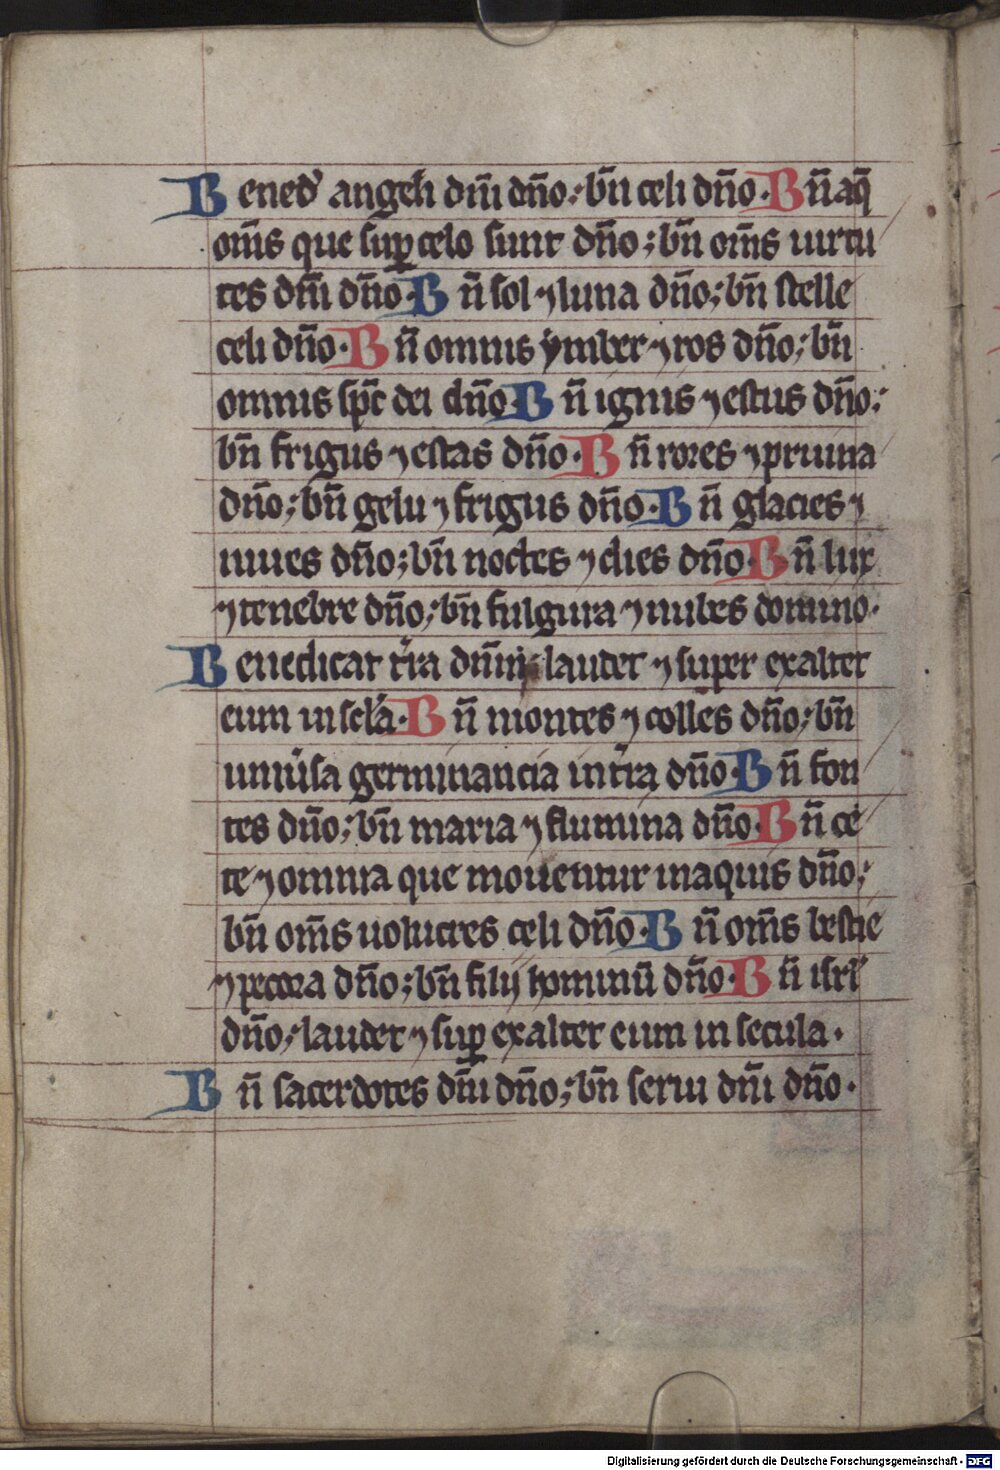 Bened᷎ angeli dn̄i dn̄o: bn̄ celi dn̄o. Bn̄ aq̄
om̄s que sup celo sunt dn̄o; bn̄ om̄s uirtu
tes dn̄i dn̄o. Bn̄ sol ⁊ luna dn̄o; bn̄ stelle
celi dn̄o. Bn̄ omnis ymber ⁊ ros dn̄o; bn̄
omnis sp̄c dei dn̄o Bn̄ ignis ⁊ estus dn̄o;
bn̄ frigus ⁊ estas dn̄o. Bn̄ rores ⁊ pruina
dn̄o; bn̄ gelu ⁊ frigus dn̄o. Bn̄ glacies ⁊
niues dn̄o; bn̄ noctes ⁊ dies dn̄o. Bn̄ lux
⁊ tenebre dn̄o; bn̄ fulgura ⁊ nubes domino.
Benedicat t̄ra dn̄m laudet ⁊ super exaltet
eum in sc̄la. Bn̄ montes ⁊ colles dn̄o; bn̄
uniūsa germinancia in t̄ra dn̄o. Bn̄ fon
tes dn̄o; bn̄ maria ⁊ flumina dn̄o. Bn̄ ce
te ⁊ omnia que mouentur in aquis dn̄o;
bn̄ om̄s uolucres celi dn̄o. Bn̄ om̄s bestie
⁊ pecora dn̄o; bn̄ filij hominū dn̄o. Bn̄ isrl̄
dn̄o; laudet ⁊ sup exaltet eum in secula.
Bn̄ sacerdotes dn̄i dn̄o; bn̄ serui dn̄i dn̄o.
Digitalisierung gefördert durch die Deutsche Forschungsgemeinschaft - DFG